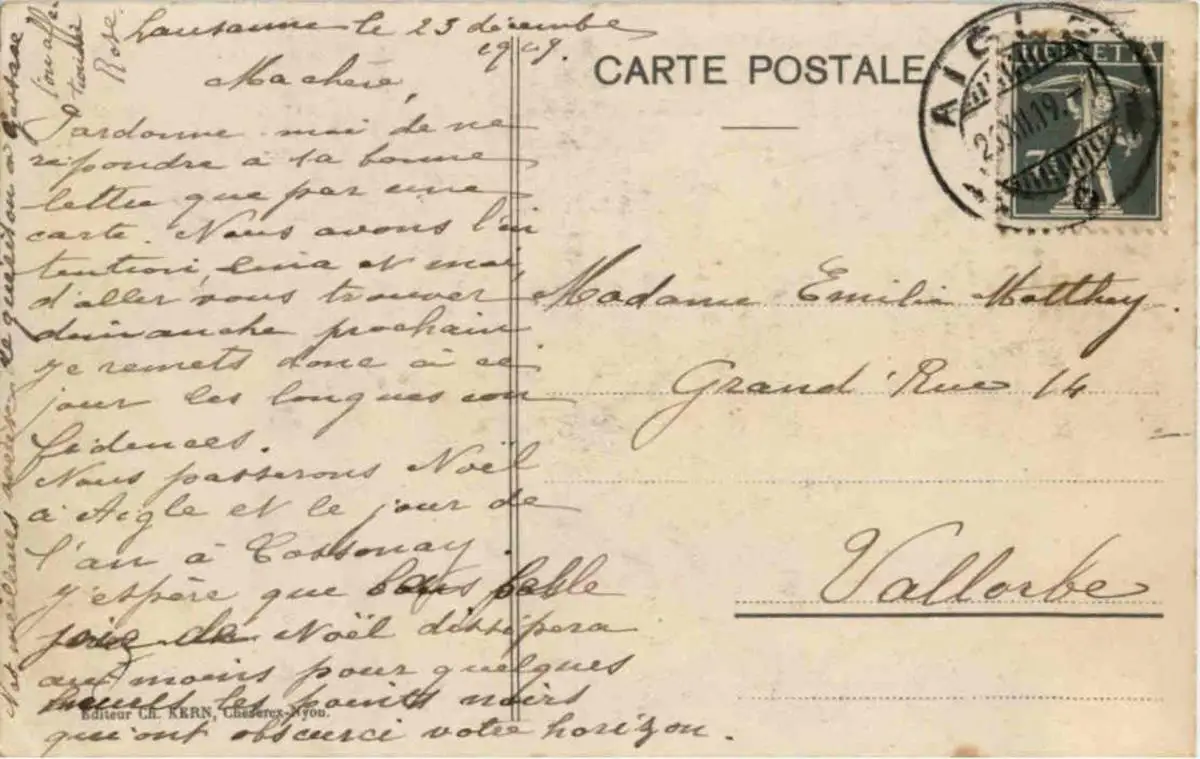 Lausanne le 23 décembre
1919.
Ma chère,
Pardonne-moi de ne
répondre à ta bonne
lettre que par une
carte. Nous avons l'in
tention, Lina et moi,
d'aller vous trouver
dimanche prochain
je remets donc à ce
jour les longues con
fidences.
Nous passerons Noël
à Aigle et le jour de
l'an à Cossonay.
J'espère que
joie de Noël dissipera
au moins pour quelques
heures les points noirs
qui ont obscurci votre horizon.
Nos meilleurs
Rose.
CARTE POSTALE
AIGLE
23.XII.19.
HELVETIA
Madame Emilie Matthey.
Grand'Rue 14
Vallorbe
Editeur Ch. KERN, Cheserex-Nyon.